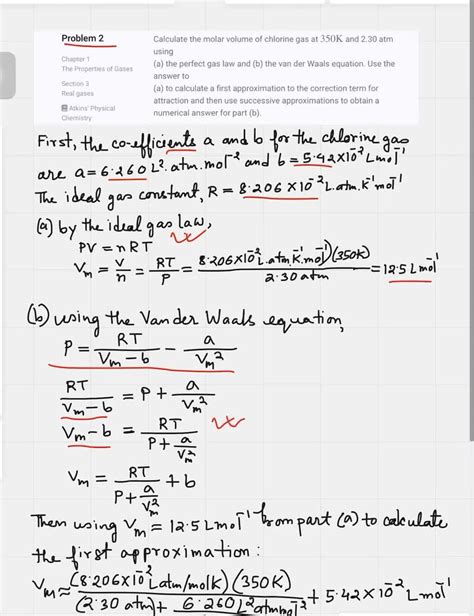 Problem 2
Chapter 1
The Properties of Gases
Section 3
Real gases
Atkins' Physical
Chemistry
Calculate the molar volume of chlorine gas at 350K and 2.30 atm
using
(a) the perfect gas law and (b) the van der Waals equation. Use the
answer to
(a) to calculate a first approximation to the correction term for
attraction and then use successive approximations to obtain a
numerical answer for part (b).
First, the co-efficients a and b for the chlorine gas
are a = 6.260 L². atm. mol⁻² and b = 5.42×10⁻² L mol⁻¹
The ideal gas constant, R = 8.206 ×10⁻² L. atm. K⁻¹ mol⁻¹
(a) by the ideal gas law,
PV = nRT
Vm = V/n = RT/P = (8.206×10⁻² L. atm. K⁻¹. mol⁻¹)(350K)/2.30 atm = 12.5 L mol⁻¹
(b) using the Van der Waals equation,
P = RT/(Vm − b) − a/Vm²
RT/(Vm − b) = P + a/Vm²
Vm − b = RT/(P + a/Vm²)
Vm = RT/(P + a/Vm²) + b
Then using Vm = 12.5 L mol⁻¹ from part (a) to calculate
the first approximation :
Vm ≈ (8.206×10⁻² L atm/mol K) (350K)/(2.30 atm) + 6.260 L² atm mol⁻² + 5.42×10⁻² L mol⁻¹